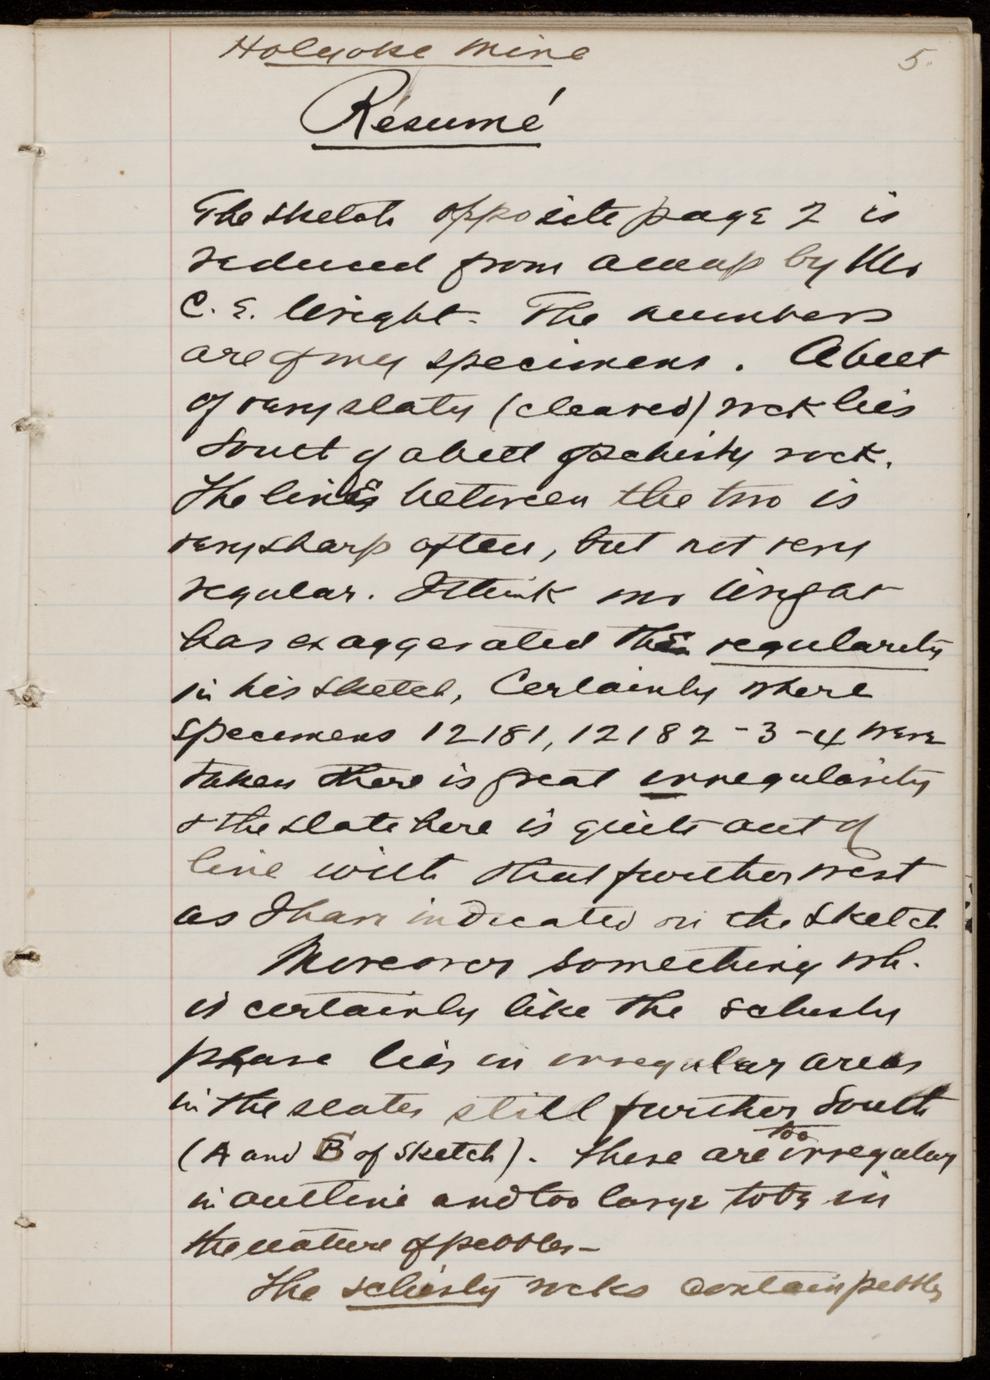 Holyoke Mine
5.
Résumé
The sketch opposite page 2 is
reduced from a map by Mr
C. E. Wright. The numbers
are of my specimens. A belt
of very slaty (cleaved) rock lies
South of a belt of schisty rock.
The line between the two is
very sharp often, but not very
regular. I think Mr Wright
has exaggerated the regularity
in his sketch, Certainly where
specimens 12181, 12182-3-4 were
taken there is great irregularity
& the slate here is quite out of
line with that further west
as I have indicated on the sketch
Moreover something wh.
is certainly like the schisty
phase lies in irregular areas
in the slates still further South
(A and B of sketch). These are too irregular
in outline and too large to be in
the nature of pebbles -
The schisty rocks contain pebbles